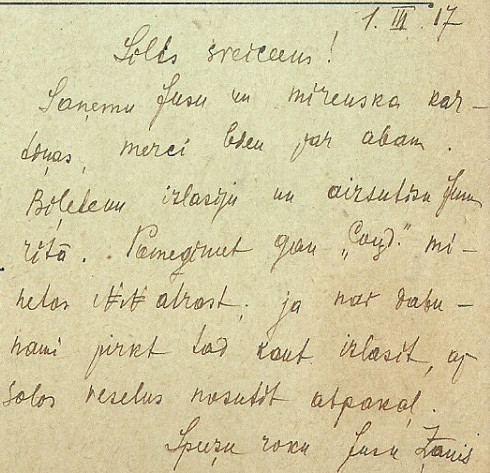 1. III. 17
Solts sveiceens!
Saņemu Jusu un mirenska kar-
tiņas, merci bden par abam.
Biļetenu izlasiju un aizsutisu Jums
rītā. Pamēģinet gan „Coyd." mi-
netos №№ atrast; ja nav dabu-
nami pirkt tad kaut izlasit, ap
solos veselus nosutīt atpakaļ.
Speežu roku Jusu Žanis